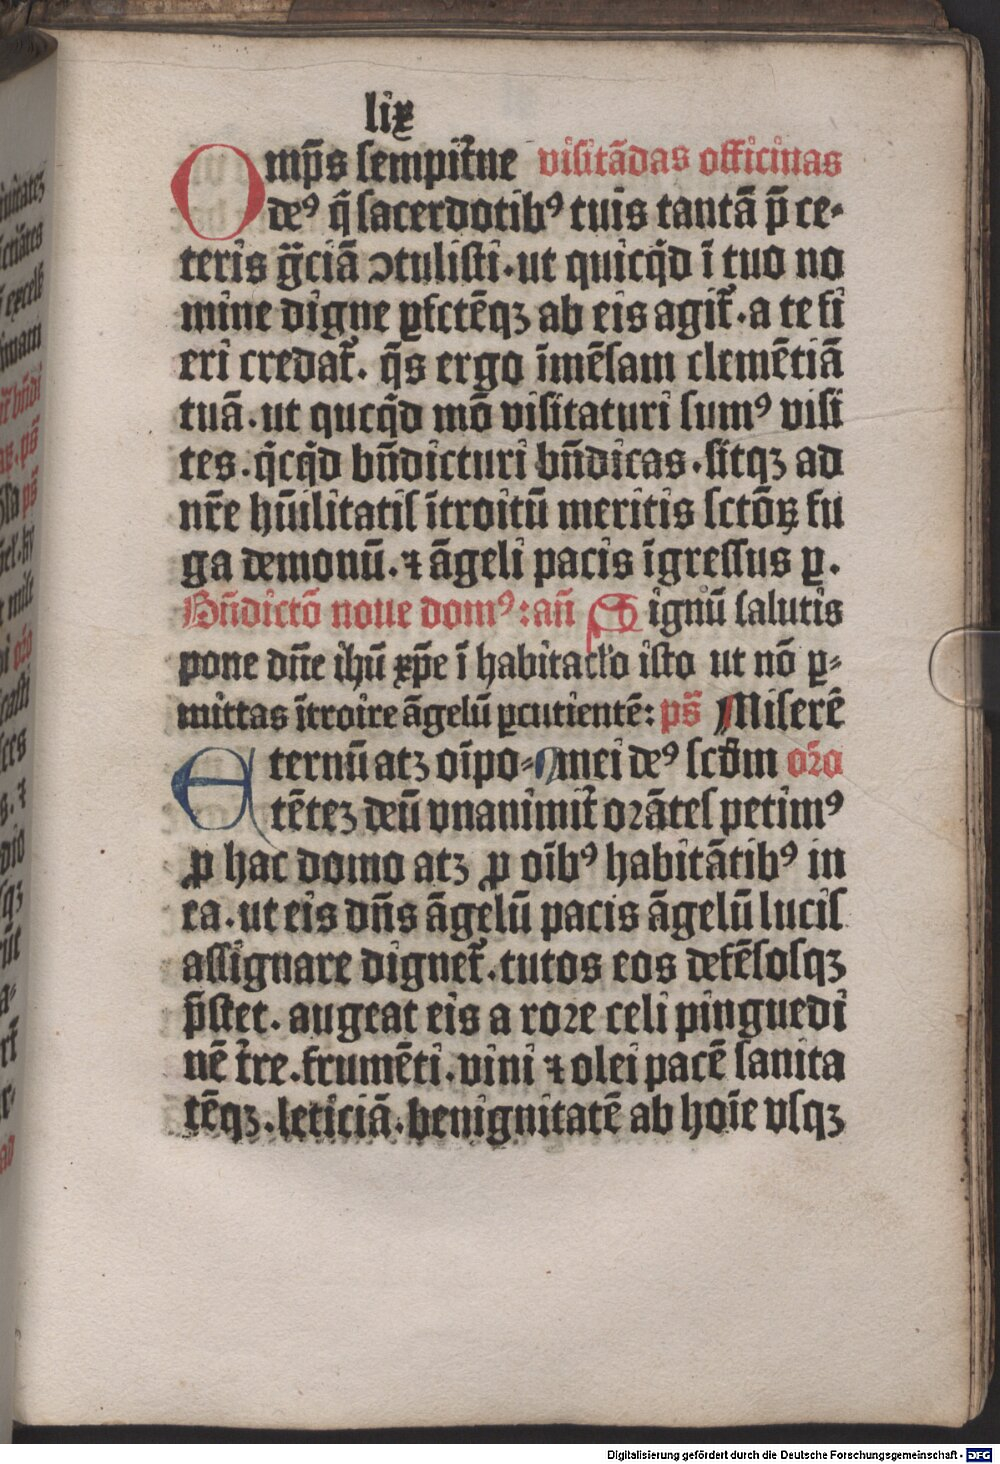 lix
Omp̄s sempit̄ne visitādas officinas
deꝰ q̄ sacerdotibꝰ tuis tantā p̄ ce⸗
teris gr̄ciā ꝯtulisti·ut quicq̄d ī tuo no
mine digne ꝑfctēqꝫ ab eis agit᷑·a te fi
eri credat᷑. q̄s ergo īmēsam clemētiā
tuā·ut qucq̄d mō visitaturi sumꝰ visi
tes·q̄cq̄d bn̄dicturi bn̄dicas·sitqꝫ ad
nr̄e hūilitatis ītroitū meritis sctōꝝ fu
ga demonū.⁊ āgeli pacis īgressus ꝑ.
Bn̄dictō noue domꝰ:an̄ Signū salutis
pone dn̄e ihū xp̄e ī habitaclo isto ut nō ꝑ⸗
mittas ītroire āgelū ꝑcutientē: ps̄ Miserē
Eternū atꝫ oīpo⸗ mei deꝰ scd̄m oꝛ̄o
tētez deū vnanimit̄ oꝛātes petimꝰ
ꝓ hac domo atꝫ ꝓ oībꝰ habitātibꝰ in
ea·ut eis dn̄s āgelū pacis āgelū lucis
assignare dignet᷑·tutos eos defēsosqꝫ
p̄stet·augeat eis a roꝛe celi pinguedi
nē t̄re·frumēti·vini ⁊ olei pacē sanita
tēqꝫ·leticiā·benignitatē ab hoīe vsqꝫ
Digitalisierung gefördert durch die Deutsche Forschungsgemeinschaft - DFG